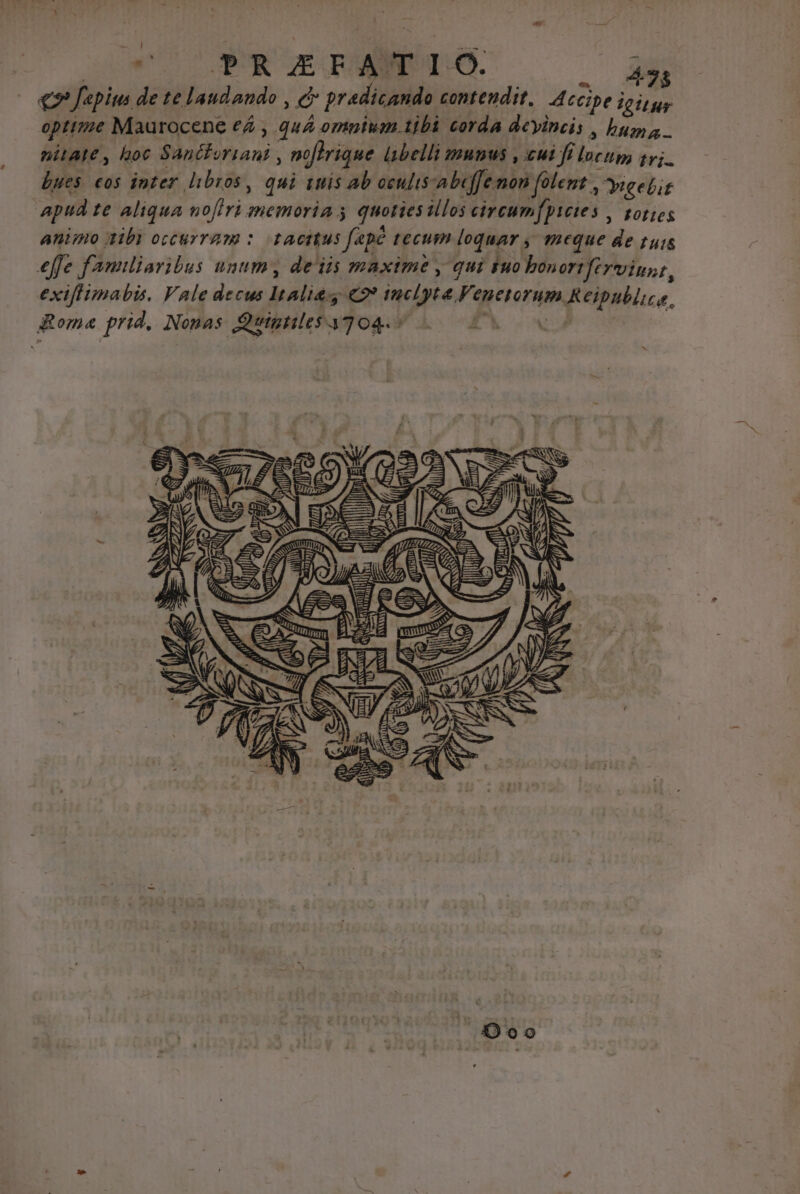 PRÆFATIO. 473
& ſæpius de te laudando, & prædicando contendit. Accipe igitur
optime Maurocene eâ, quâ omnium tibi corda devincis, huma-
nitate, hoc Sanctoriani, noſtrique libelli munus, cui ſi locum tri-
bues eos inter libros, qui tuis ab oculis abeſſe non ſolent, vigebit
apud te aliqua noſtri memoria; quoties illos circumſpicies, toties
animo tibi occurram: tacitus ſæpè tecum loquar, meque de tuis
eſſe familiaribus unum, de iis maximè, qui tuo honori ſerviunt,
exiſtimabis. Vale decus Italiæ, & inclytæ Venetorum Reipublicæ.
Romæ prid. Nonas Quintiles 1704.
Ooo